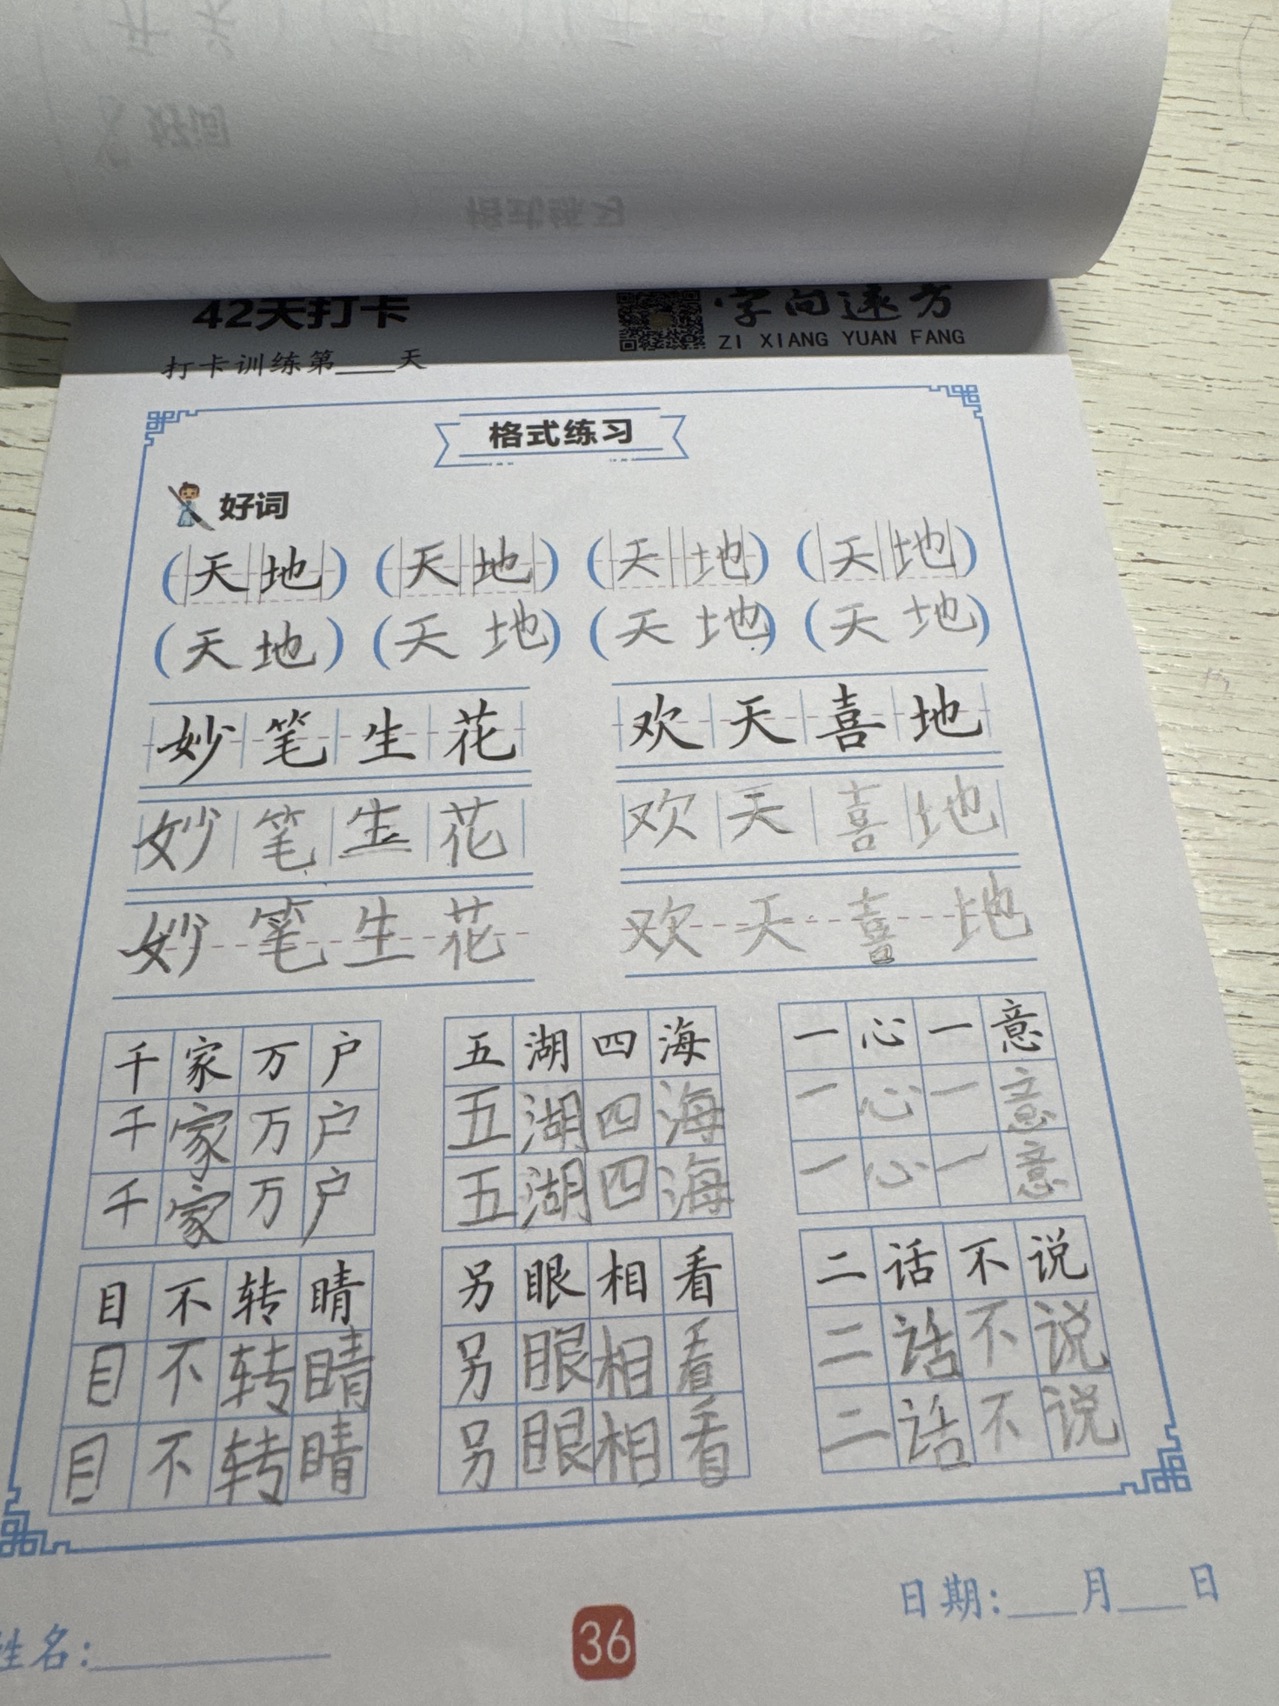 42天打卡
字向远方
ZI XIANG YUAN FANG
打卡训练第____天
格式练习
好词
(天地) (天地) (天地) (天地)
(天地) (天地) (天地) (天地)
妙笔生花 欢天喜地
妙笔生花 欢天喜地
妙笔生花 欢天喜地
千家万户 五湖四海 一心一意
千家万户 五湖四海 一心一意
千家万户 五湖四海 一心一意
目不转睛 另眼相看 二话不说
目不转睛 另眼相看 二话不说
目不转睛 另眼相看 二话不说
日期:___月___日
姓名:__________
36